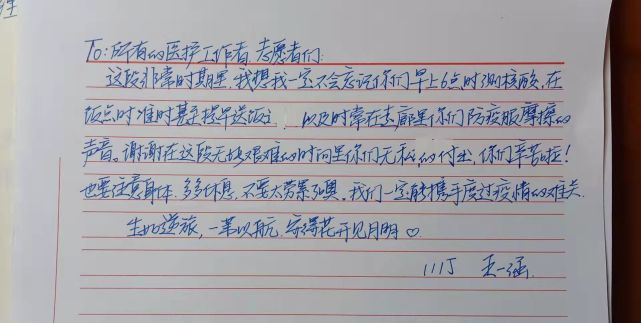 To:所有的医护工作者、志愿者们:
这段非常时期里,我想我一定不会忘记你们早上6点时测核酸,在
饭点时准时甚至提早送饭,以及时常在走廊里你们防疫服摩擦的
声音。谢谢在这段无比艰难的时间里你们无私的付出,你们辛苦啦!
也要注意身体,多多休息,不要太劳累噢。我们一定能携手度过疫情的难关。
生如逆旅,一苇以航,守得花开见月明♡
王一涵